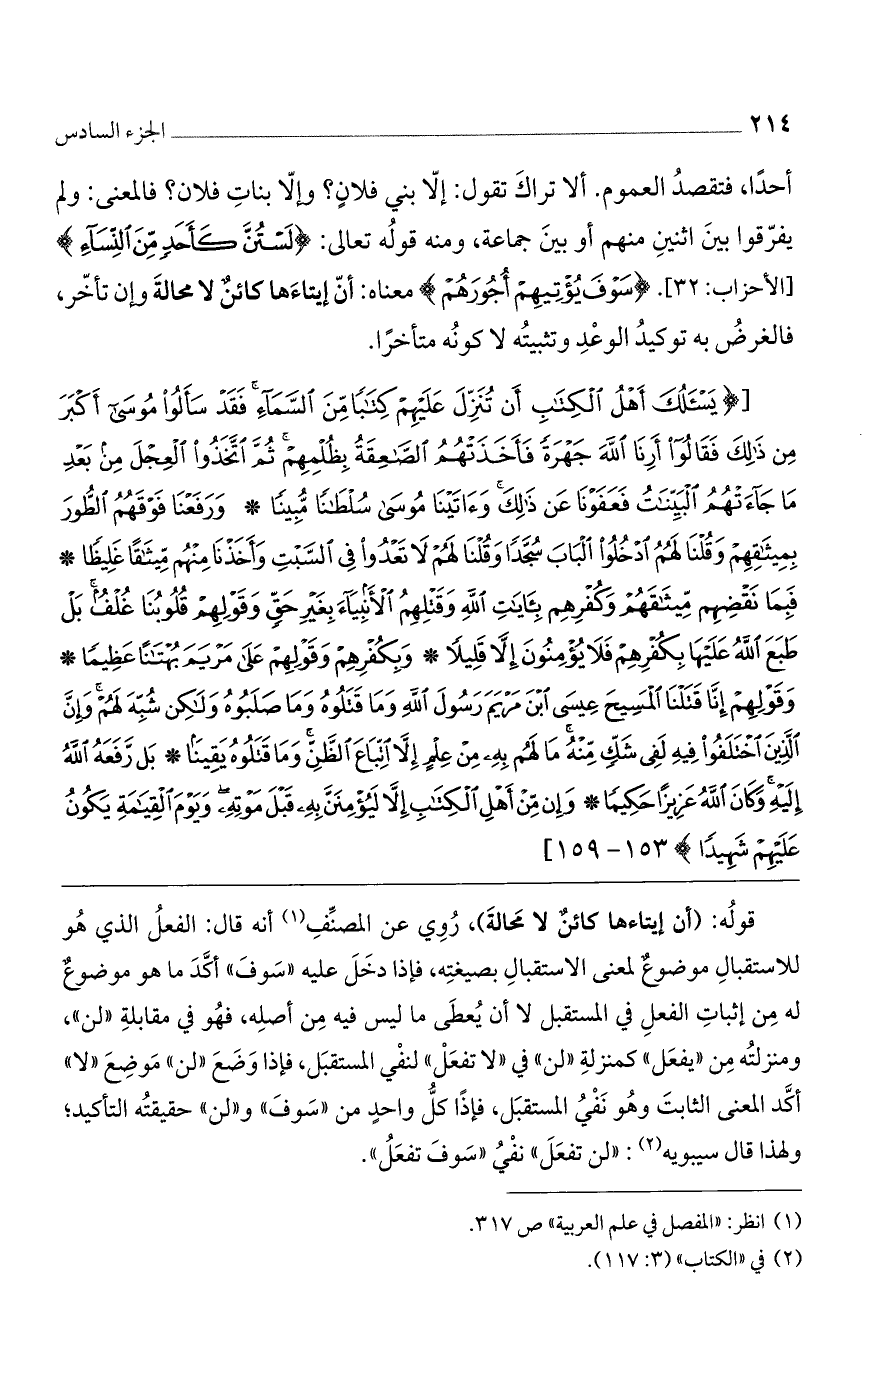 ٢١٤ ــــــــــــــــــــ الجزء السادس
أحدًا، فتقصدُ العموم. ألا تراكَ تقول: إلّا بني فلانٍ؟ وإلّا بناتِ فلان؟ فالمعنى: ولم
يفرّقوا بينَ اثنينِ منهم أو بينَ جماعة، ومنه قولُه تعالى: ﴿لَسْتُنَّ كَأَحَدٍ مِّنَ ٱلنِّسَآءِ﴾
[الأحزاب: ٣٢]. ﴿سَوْفَ يُؤْتِيهِمْ أُجُورَهُمْ﴾ معناه: أنّ إيتاءَها كائنٌ لا محالةَ وإن تأخّر،
فالغرضُ به توكيدُ الوعْدِ وتثبيتُه لا كونُه متأخرًا.
[﴿يَسْـَٔلُكَ أَهْلُ ٱلْكِتَٰبِ أَن تُنَزِّلَ عَلَيْهِمْ كِتَٰبًا مِّنَ ٱلسَّمَآءِ ۚ فَقَدْ سَأَلُوا۟ مُوسَىٰٓ أَكْبَرَ
مِن ذَٰلِكَ فَقَالُوٓا۟ أَرِنَا ٱللَّهَ جَهْرَةً فَأَخَذَتْهُمُ ٱلصَّٰعِقَةُ بِظُلْمِهِمْ ۚ ثُمَّ ٱتَّخَذُوا۟ ٱلْعِجْلَ مِنۢ بَعْدِ
مَا جَآءَتْهُمُ ٱلْبَيِّنَٰتُ فَعَفَوْنَا عَن ذَٰلِكَ ۚ وَءَاتَيْنَا مُوسَىٰ سُلْطَٰنًا مُّبِينًا * وَرَفَعْنَا فَوْقَهُمُ ٱلطُّورَ
بِمِيثَٰقِهِمْ وَقُلْنَا لَهُمُ ٱدْخُلُوا۟ ٱلْبَابَ سُجَّدًا وَقُلْنَا لَهُمْ لَا تَعْدُوا۟ فِى ٱلسَّبْتِ وَأَخَذْنَا مِنْهُم مِّيثَٰقًا غَلِيظًا *
فَبِمَا نَقْضِهِم مِّيثَٰقَهُمْ وَكُفْرِهِم بِـَٔايَٰتِ ٱللَّهِ وَقَتْلِهِمُ ٱلْأَنۢبِيَآءَ بِغَيْرِ حَقٍّ وَقَوْلِهِمْ قُلُوبُنَا غُلْفٌۢ ۚ بَلْ
طَبَعَ ٱللَّهُ عَلَيْهَا بِكُفْرِهِمْ فَلَا يُؤْمِنُونَ إِلَّا قَلِيلًا * وَبِكُفْرِهِمْ وَقَوْلِهِمْ عَلَىٰ مَرْيَمَ بُهْتَٰنًا عَظِيمًا *
وَقَوْلِهِمْ إِنَّا قَتَلْنَا ٱلْمَسِيحَ عِيسَى ٱبْنَ مَرْيَمَ رَسُولَ ٱللَّهِ وَمَا قَتَلُوهُ وَمَا صَلَبُوهُ وَلَٰكِن شُبِّهَ لَهُمْ ۚ وَإِنَّ
ٱلَّذِينَ ٱخْتَلَفُوا۟ فِيهِ لَفِى شَكٍّ مِّنْهُ ۚ مَا لَهُم بِهِۦ مِنْ عِلْمٍ إِلَّا ٱتِّبَاعَ ٱلظَّنِّ ۚ وَمَا قَتَلُوهُ يَقِينًۢا * بَل رَّفَعَهُ ٱللَّهُ
إِلَيْهِ ۚ وَكَانَ ٱللَّهُ عَزِيزًا حَكِيمًا * وَإِن مِّنْ أَهْلِ ٱلْكِتَٰبِ إِلَّا لَيُؤْمِنَنَّ بِهِۦ قَبْلَ مَوْتِهِۦ ۖ وَيَوْمَ ٱلْقِيَٰمَةِ يَكُونُ
عَلَيْهِمْ شَهِيدًا﴾ ١٥٣ - ١٥٩]
قولُه: (أن إيتاءها كائنٌ لا مَحالةَ)، رُوِي عن المصنِّفِ(١) أنه قال: الفعلُ الذي هُو
للاستقبالِ موضوعٌ لمعنى الاستقبالِ بصيغتِه، فإذا دخَلَ عليه «سَوفَ» أكَّدَ ما هو موضوعٌ
له مِن إثباتِ الفعلِ في المستقبل لا أن يُعطَى ما ليس فيه مِن أصلِه، فهُو في مقابلةِ «لن»،
ومنزلتُه مِن «يفعَل» كمنزلةِ «لن» في «لا تفعَلْ» لنفْي المستقبَل، فإذا وَضَعَ «لن» مَوضِعَ «لا»
أكَّد المعنى الثابتَ وهُو نَفْيُ المستقبَل، فإذًا كلُّ واحدٍ من «سَوفَ» و«لن» حقيقتُه التأكيد؛
ولهذا قال سيبويه(٢): «لن تفعَلَ» نفْيُ «سَوفَ تفعَلُ».
(١) انظر: «المفصل في علم العربية» ص ٣١٧.
(٢) في «الكتاب» (٣: ١١٧).